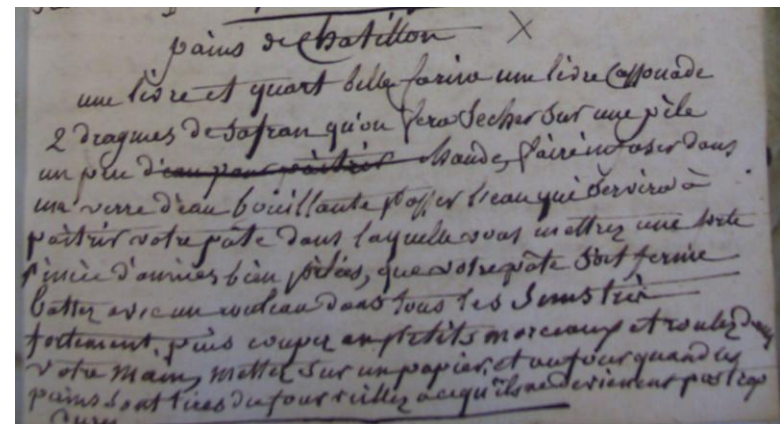 pains de Chatillon X
une livre et quart belle farine une livre Cassonade
2 dragmes de safran qu'on fera secher sur une pêle
un peu d'eau pour pâitrir chaude, faire infuser dans
un verre d'eau bouillante passer l'eau qui servira à
paitrir votre pâte dans laquelle vous mettrez une forte
pincée d'annies bien pilées, que votre pate soit ferme
battez avec un rouleau dans tous les sens très
fortement, puis coupez en petits morceaux et roulez dans
votre main, mettez sur un papier, et au four quand les
pains sont tirés du four veillez a ce qu'ils ne devienent pas trop